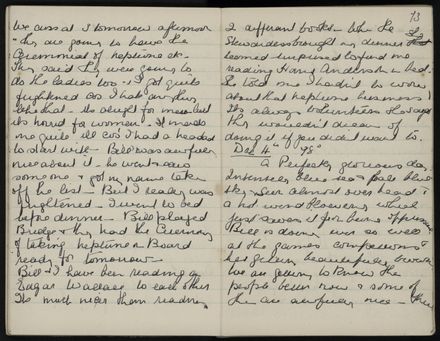 We cross at 3 tomorrow afternoon
- they are going to have the
Ceremonial of neptune etc -
They said they were going to
do the ladies too - I got quite
frightened cos I hate any thing
like that - its alright for men but
its horrid for women - It made
me quite ill cos I had a headed
to start with - Bill was awfully
nice about it - he went & saw
some one & got my name taken
off the list - But I really was
frightened - I went to bed
before dinner - Bill played
Bridge & they had the Ceremony
of taking neptune on Board
ready for tomorrow -
Bill & I have been reading an
Edgar Wallace to each other
Its much nicer than reading
73
2 different books - When the
Stewardess brought my dinner she
seemed surprised to find me
reading Hans Andersen in bed.
She told me I hadn't to worry
about that neptune business
Its always voluntary & they
wouldn't dream of
doing it if you didn't want to.
Dec 4th 95°
A Perfectly glorious day
Intensely blue sea & pale blue
sky - Sun almost over head &
a hot wind blowing which
just saves it from being oppressive
Bill is down
at the games competitions &
has gotten beautifully brown
We are getting to know the
people better now & some of them
are awfully nice -